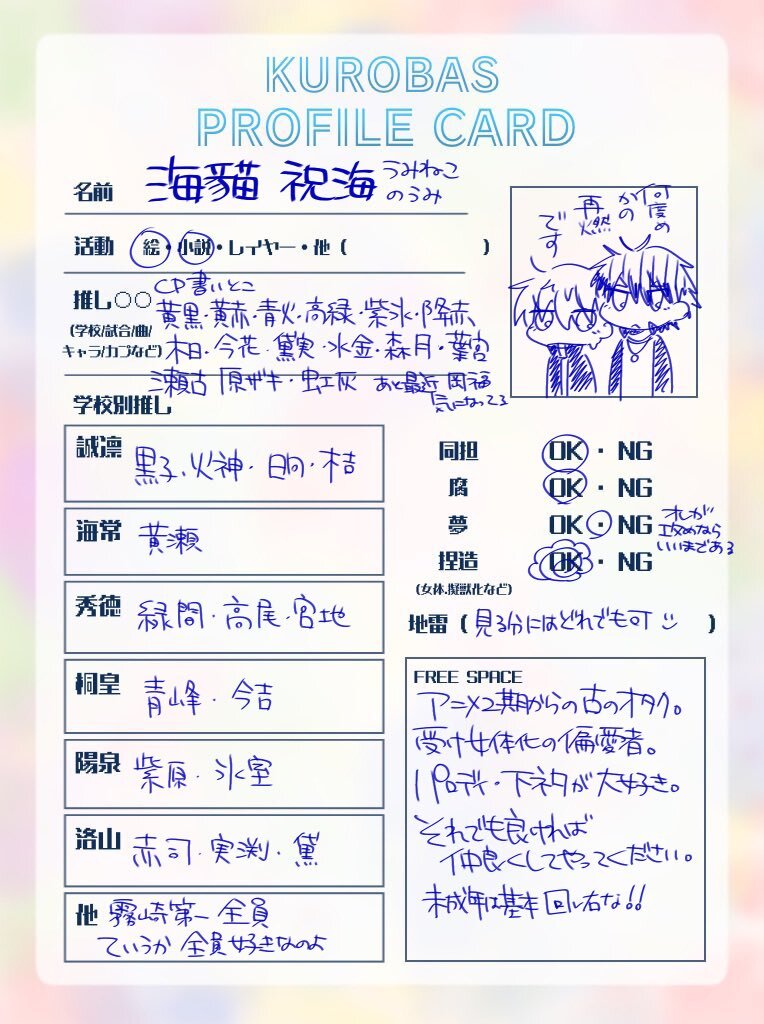 KUROBAS
PROFILE CARD
名前
海猫 祝海 うみねこ
のうみ
活動 絵・小説・レイヤー・他( )
何度め
かの
再燃
です
推し○○
(学校/試合/曲/
キャラ/カプなど)
CP書いとこ
黄黒・黄赤・青火・高緑・紫氷・降赤
木日・今花・黛実・氷金・森月・葉宮
瀬古 原ザキ・虹灰 あと最近 岡福
気になってる
学校別推し
誠凛 黒子・火神・日向・木吉
海常 黄瀬
秀徳 緑間・高尾・宮地
桐皇 青峰・今吉
陽泉 紫原・氷室
洛山 赤司・実渕・黛
他 霧崎第一 全員
ていうか 全員好きなのよ
同担 OK・NG
腐 OK・NG
夢 OK・NG オレが
攻めなら
いいまである
捏造 OK・NG
(女体、擬獣化など)
地雷(見る分にはどれでも可)
FREE SPACE
アニメ2期からの古のオタク。
受け女体化の偏愛者。
パロディ・下ネタが大好き。
それでも良ければ
仲良くしてやってください。
未成年は基本回れ右な!!